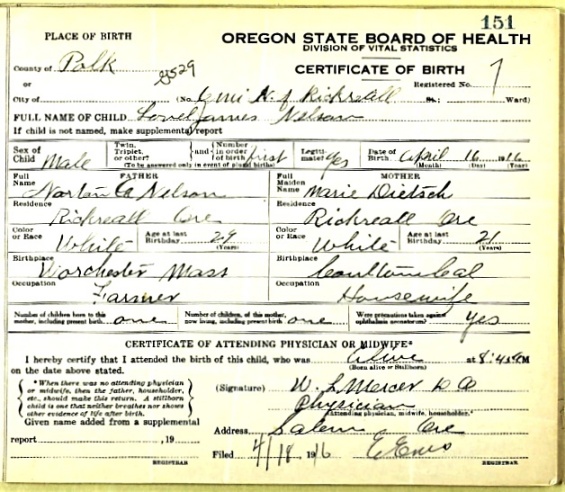 151
PLACE OF BIRTH
OREGON STATE BOARD OF HEALTH
DIVISION OF VITAL STATISTICS
County of Polk
CERTIFICATE OF BIRTH
or
Registered No. 7
City of (No. N. of Rickreall St.; Ward)
FULL NAME OF CHILD James Nelson
If child is not named, make supplemental report
Sex of Child Male Twin, Triplet, or other? and Number and in order of birth first Legitimate? Yes Date of Birth April 16 1916
(To be answered only in event of plural births) (Month) (Day) (Year)
FATHER MOTHER
Full Name Nelson Full Maiden Name Marie Dietsch
Residence Residence
Rickreall Ore Rickreall Ore
Color or Race White Age at last Birthday 29 (Years) Color or Race White Age at last Birthday 21 (Years)
Birthplace Birthplace
Worchester Mass Cal
Occupation Occupation
Farmer Housewife
Number of children born to this mother, including present birth one Number of children, of this mother, now living, including present birth one Were precautions taken against ophthalmia neonatorum? yes
CERTIFICATE OF ATTENDING PHYSICIAN OR MIDWIFE*
I hereby certify that I attended the birth of this child, who was Alive at 8:45 M
on the date above stated. (Born alive or Stillborn)
*When there was no attending physician or midwife, then the father, householder, etc., should make this return. A stillborn child is one that neither breathes nor shows other evidence of life after birth.
(Signature) W. L. Mercer
Physician
(Attending physician, midwife, householder.*
Given name added from a supplemental
Address Salem Ore
report , 19
Filed 4/18 1916
REGISTRAR REGISTRAR